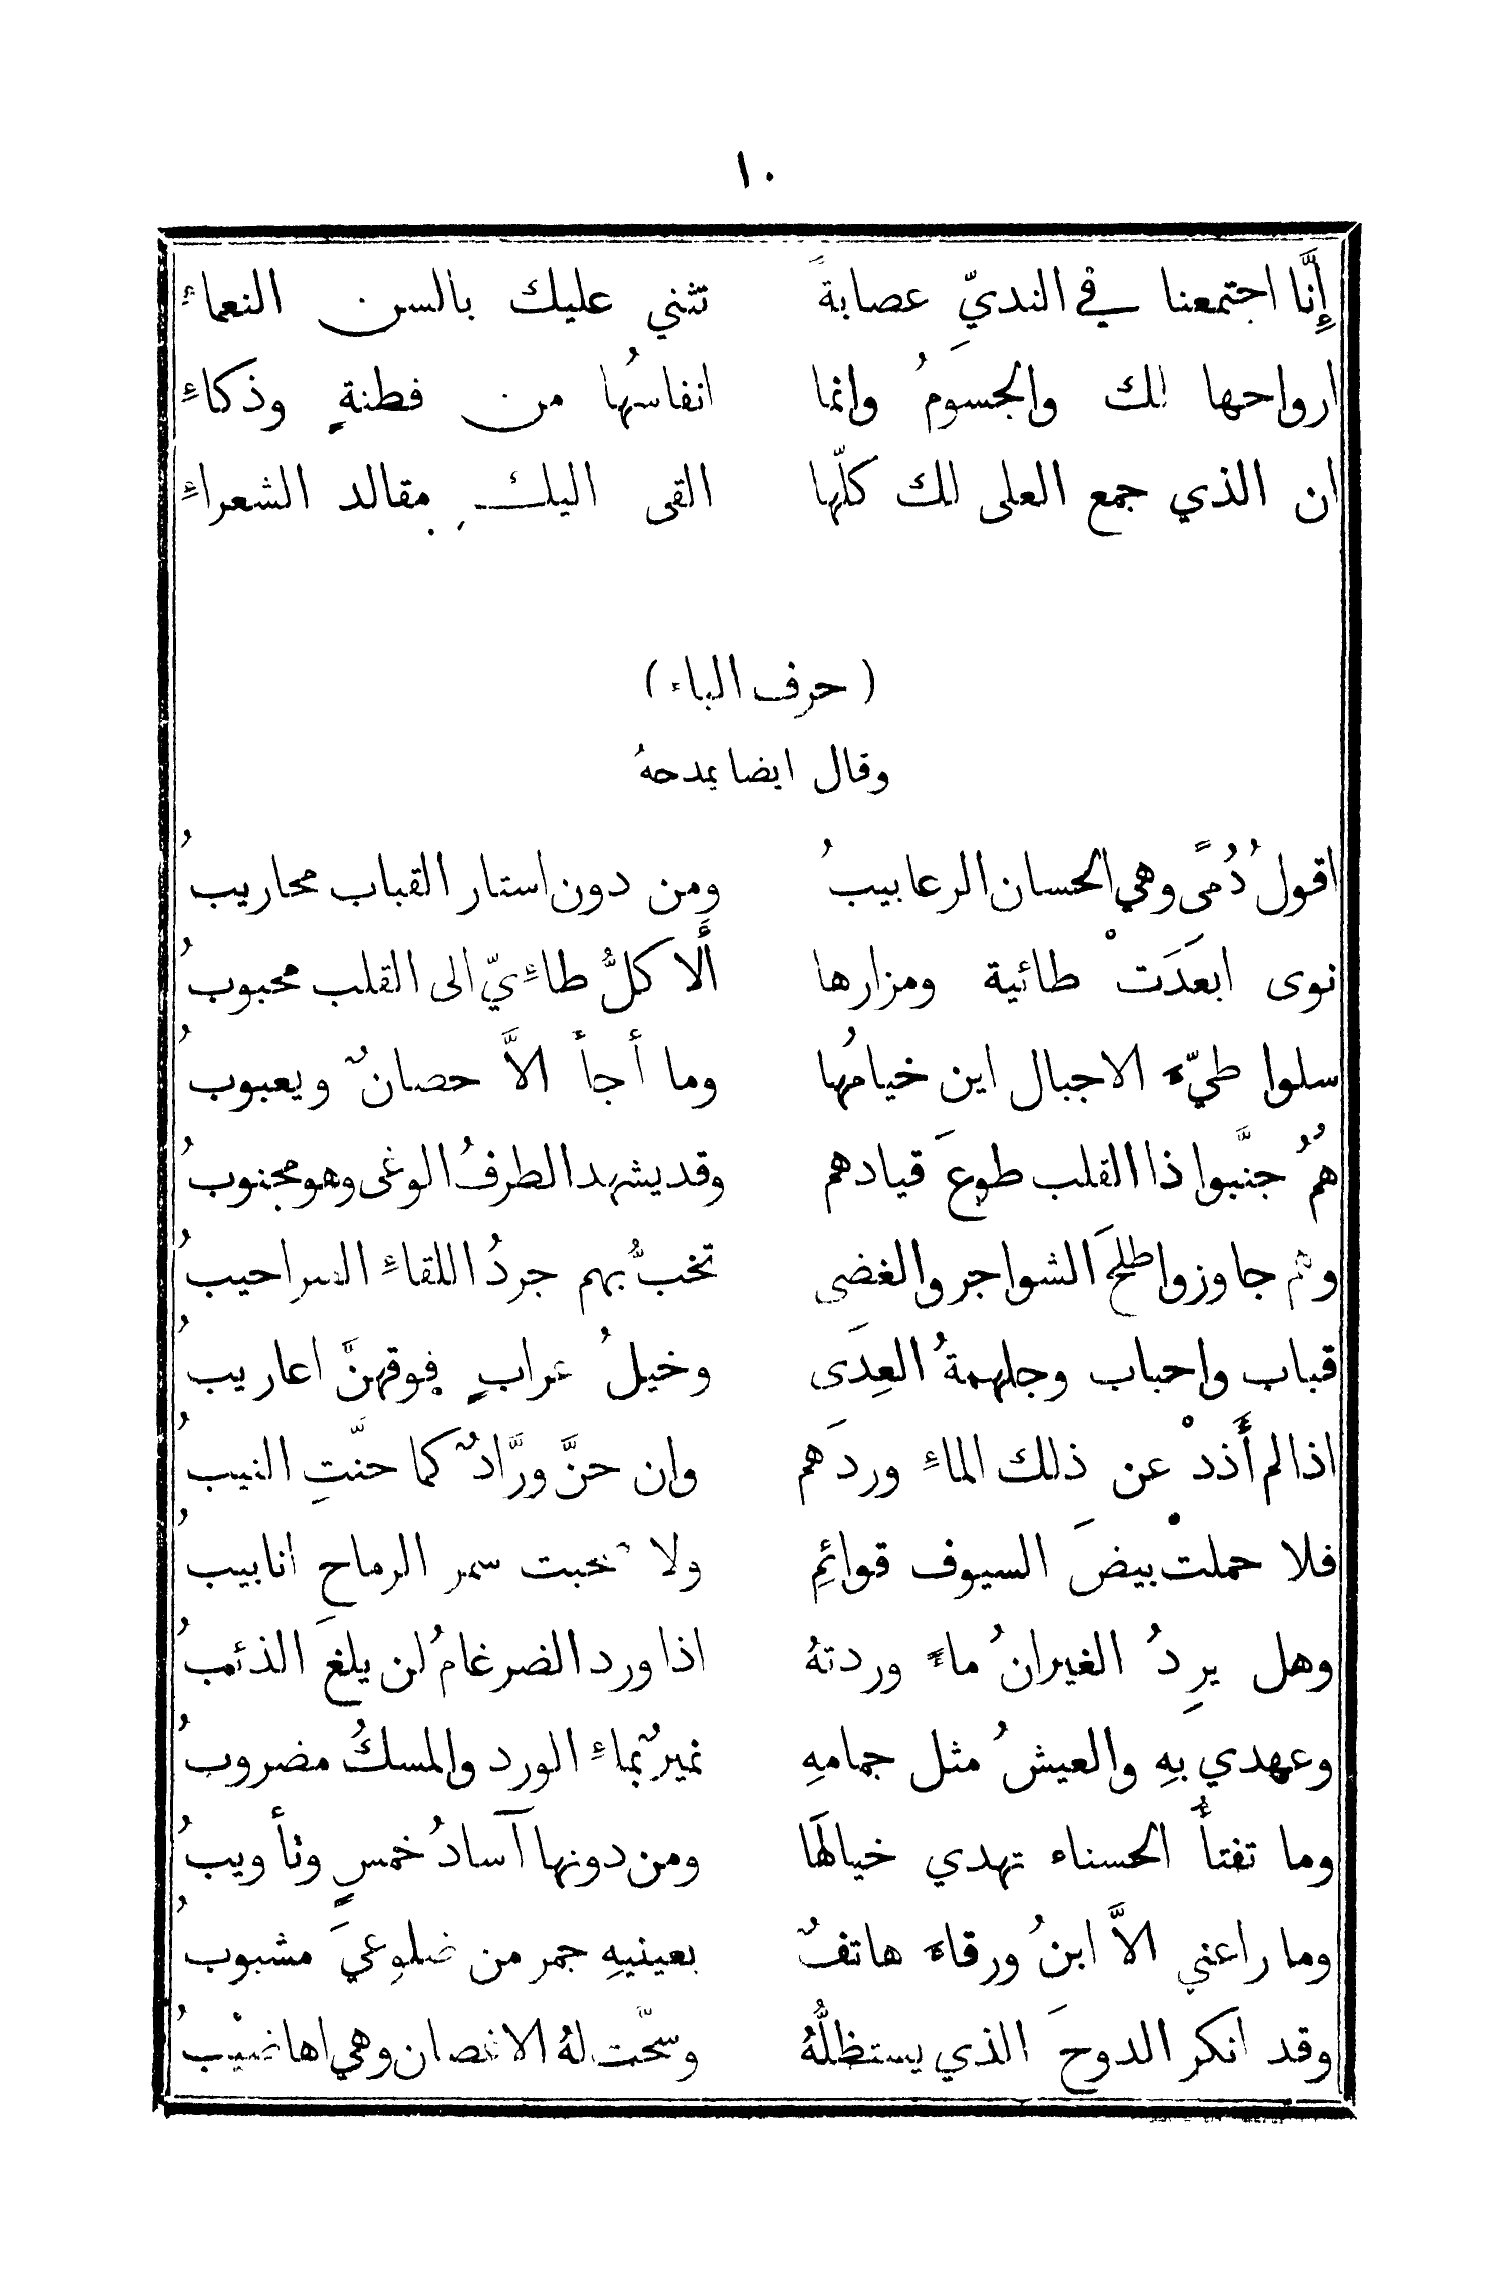 ١٠
إِنَّا اجتمعنا في النديِّ عصابةً تثني عليك بالسن النعماءِ
ارواحها لك والجسومُ وانما انفاسُها من فطنةٍ وذكاءِ
ان الذي جمع العلى لك كلّها القى اليك مقالد الشعراءِ
( حرف الباء )
وقال ايضا يمدحهُ
اقولُ دُمًى وهي الحسان الرعابيبُ ومن دون استار القباب محاريبُ
نوى ابعدَتْ طائية ومزارها أَلا كلُّ طاءِيّ الى القلب محبوبُ
سلوا طيّء الاجبال اين خيامُها وما أجأ الاَّ حصانٌ ويعبوبُ
همُ جنَّبوا ذا القلب طوعَ قيادهم وقد يشهد الطرفُ الوغى وهو مجنوبُ
وهُم جاوزوا طلحَ الشواجر والغضى تخبُّ بهم جردُ اللقاءِ السراحيبُ
قباب واحباب وجلهمةُ العِدَى وخيلُ عرابٍ فوقهنَّ اعاريبُ
اذا لم أَذدْ عن ذلك الماءِ وردَهم وان حنَّ ورَّادٌ كما حنّتِ النيبُ
فلا حملتْ بيضَ السيوف قوائمِ ولا صحبت سمر الرماح انابيبُ
وهل يرِدُ الغيرانُ ماءً وردتهُ اذا ورد الضرغامُ لن يلغَ الذئبُ
وعهدي بهِ والعيشُ مثل جمامهِ نميرٌ بماءِ الورد والمسكُ مضروبُ
وما تفتأُ الحسناء تهدي خيالهَا ومن دونها آسادُ خمسٍ وتأويبُ
وما راعني الاَّ ابنُ ورقاء هاتفٌ بعينيهِ جمر من ضلوعيَ مشبوبُ
وقد انكر الدوحَ الذي يستظلُّهُ وسحّت لهُ الاغصان وهي اهاضيْبُ